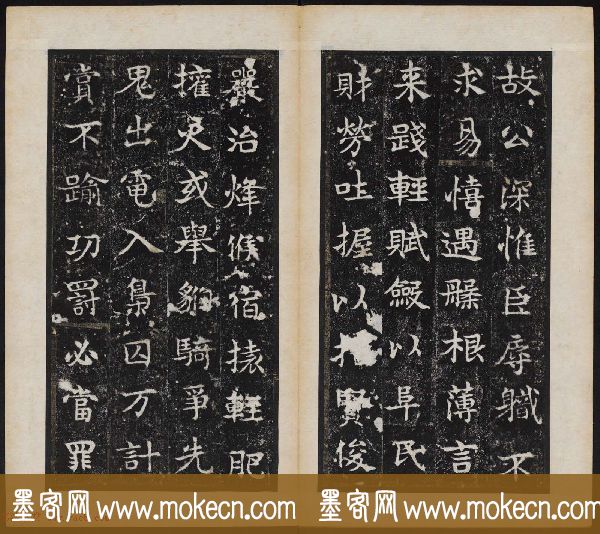 故公深惟臣辱職不
求易憘遇根薄言
来踐輕賦斂以阜民
財勞吐握以賢俊
嚴治烽候宿輕肥
擁或舉騎爭先
鬼出電入梟囚万計
賞不踰功罰必當罪
墨客网 www.mokecn.com 墨客网 www.mokecn.com